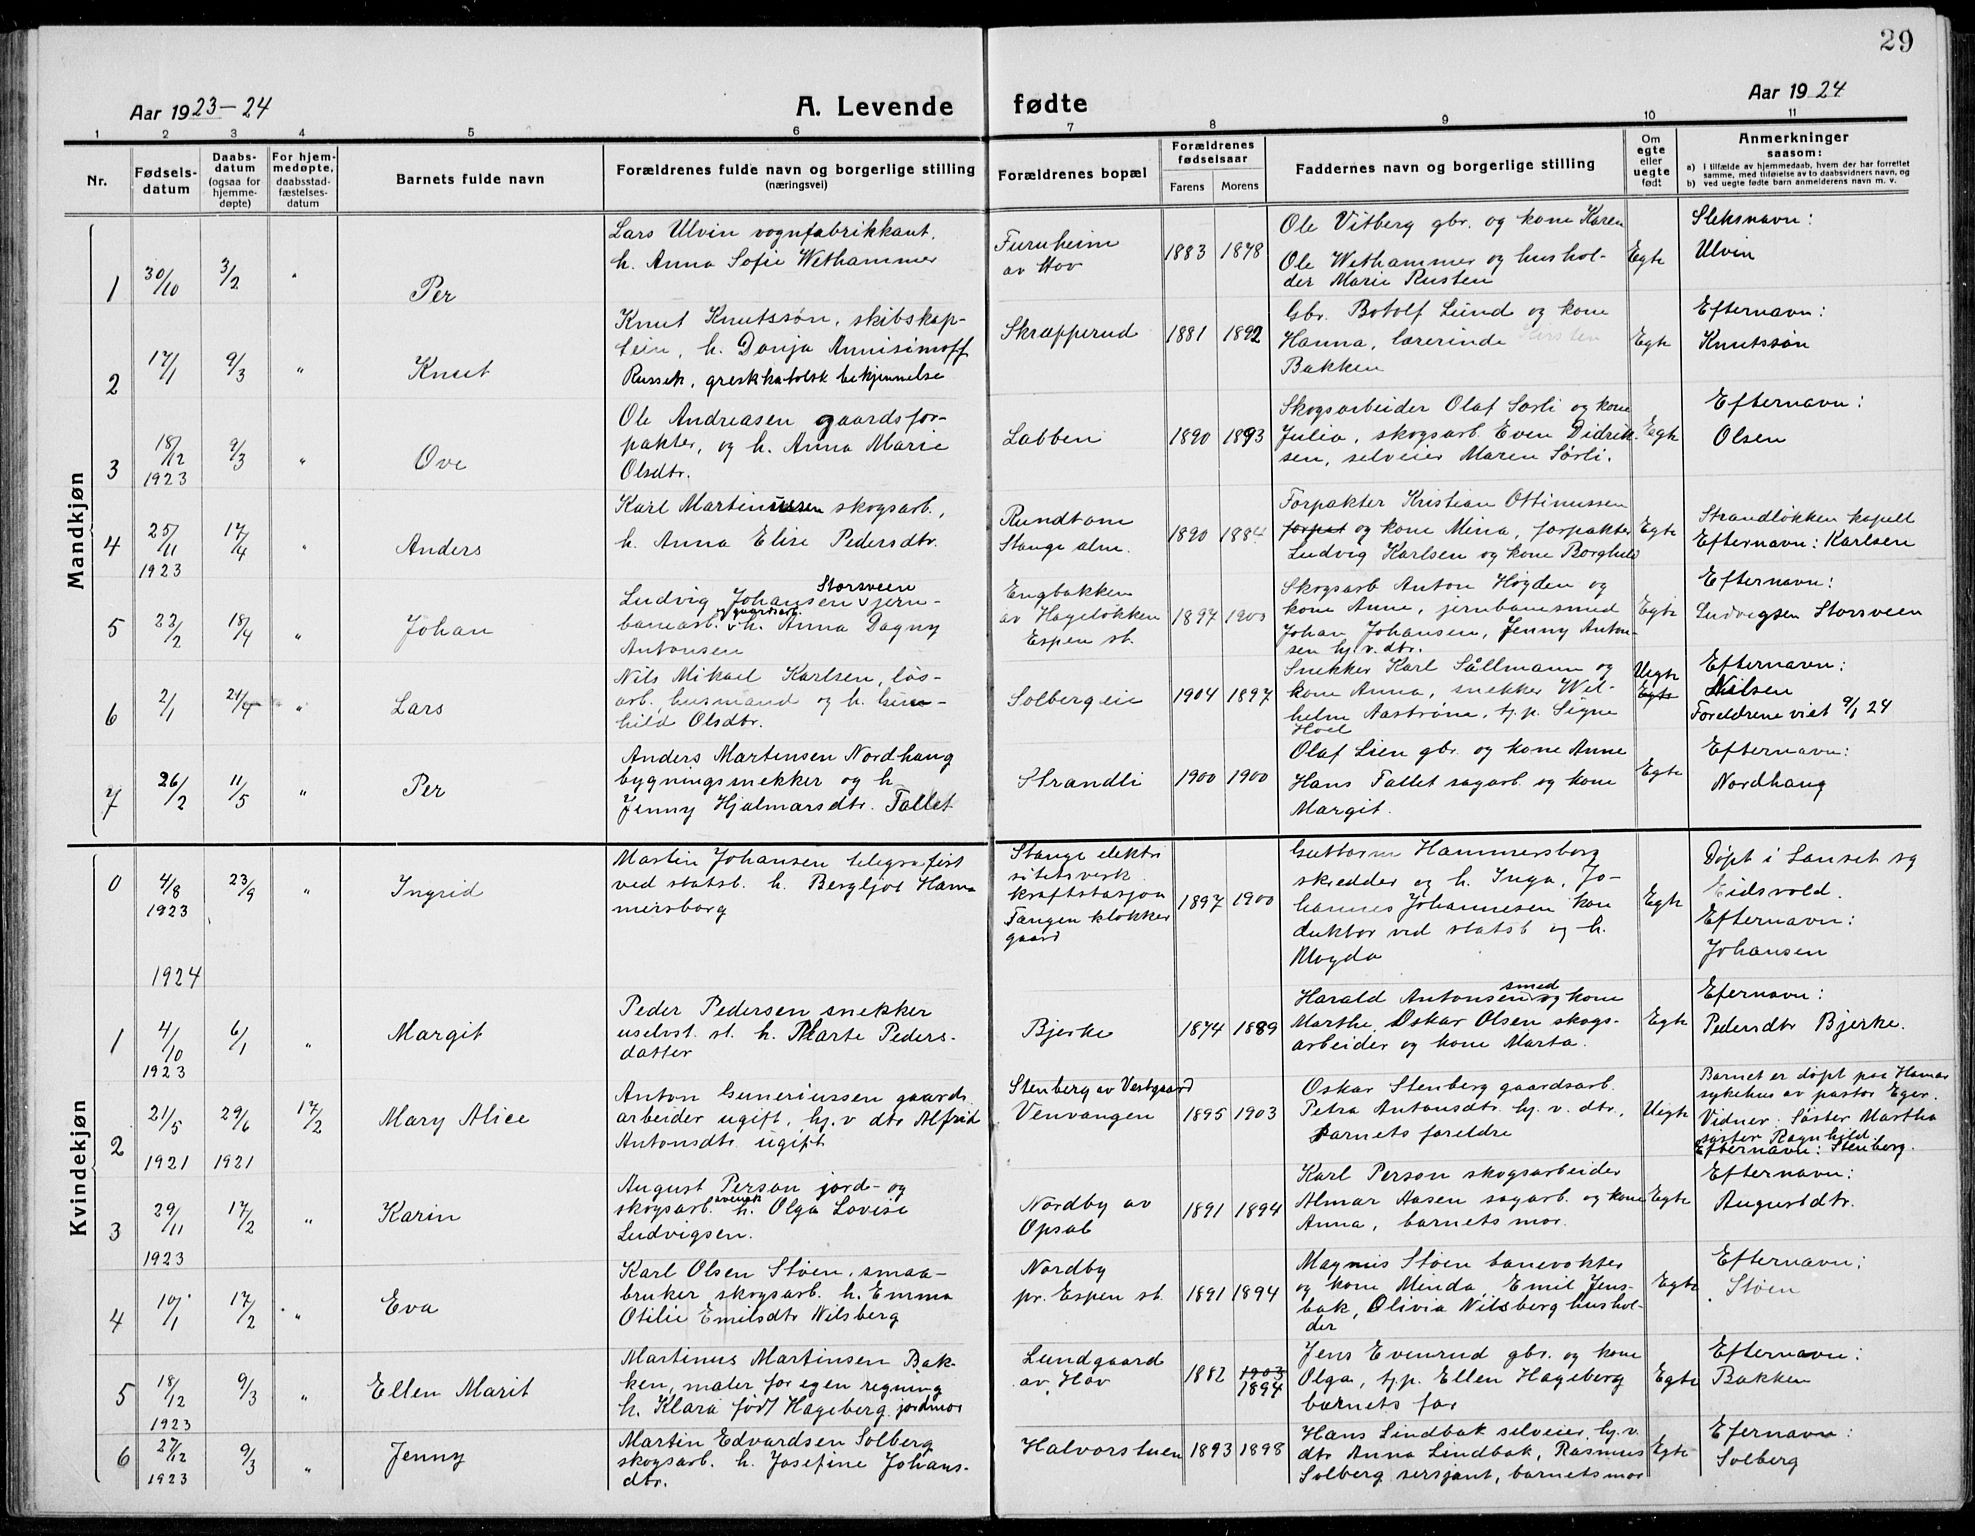 29
Aar 1923-24
A. Levende fødte
Aar 1924
1 2 3 4 5 6 7 8 9 10 11
Nr.
Fødsels-
datum
Daabs-
datum
(ogsaa for
hjemme-
døpte)
For hjem-
medøpte,
daabsstad-
fæstelses-
datum
Barnets fulde navn
Forældrenes fulde navn og borgerlige stilling
(næringsvei)
Forældrenes bopæl
Forældrenes
fødselsaar
Farens Morens
Faddernes navn og borgerlige stilling
Om
egte
eller
uegte
født
Anmerkninger
saasom:
a) I tilfælde av hjemmedaab, hvem der har forrettet
samme, med tilføielse av to daabsvidners navn, og
b) ved uegte fødte barn anmelderens navn m. v.
Mandkjøn
1 30/10 3/2 " Per
Lars Ulvin vognfabrikkant.
h. Anna Sofie Wethammer
Furuheim
av Hov
1883 1878
Ole Vitberg gbr. og kone Karen
Ole Wethammer og hushol-
der Marie Rusten
Egte
Sleksnavn:
Ulvin
2 17/1 9/3 " Knut
Knut Knutssøn, skibskap-
tein, h. Donja Annisimoff
Russek, greskkatolsk bekjennelse
Skræpperud
1881 1892
Gbr. Botolf Lund og kone
Hanna, lærerinde Kirsten
Bakken
Egte
Efternavn:
Knutssøn
3 18/12 1923 9/3 " Ove
Ole Andreasen gaardsfor-
pakter, og h. Anna Marie
Olsdtr.
Labben
1890 1893
Skogsarbeider Olaf Sørli og kone
Julia, skogsarb. Even Didrik-
sen, selveier Maren Sørli.
Egte
Efternavn:
Olsen
4 25/11 1923 17/4 " Anders
Karl Martinussen skogsarb.,
h. Anna Elise Pedersdtr.
Rundtom
Stange alm.
1890 1884
Forpakter Kristian Ottinussen
forpat og kone Mina, forpakter
Ludvig Karlsen og kone Borghild
Egte
Strandløkken kapell
Efternavn: Karlsen
5 23/2 18/4 " Johan
Storsveen
Ludvig Johansen jern-
og gaardsarb.
banearb. h. Anna Dagny
Antonsen
Engbakken
av Hageløkken
Espen st.
1897 1900
Skogsarb Anton Høgden og
kone Anne, jernbanesmed
Johan Johansen, Jenny Anton-
sen hj. v. dtr.
Egte
Efternavn:
Ludvigsen Storsveen
6 2/1 21/4 " Lars
Nils Mikael Karlsen, løs-
arb, husmand og h. Gun-
hild Olsdtr.
Solberg eie
1904 1897
Snekker Karl Sållmann og
kone Anna, snekker Wil-
helm Aastrøm, tj. p. Signe
Hoel
Uegte
Egte
Efternavn:
Nilsen
Foreldrene viet 9/1 24
7 26/2 11/5 " Per
Anders Martinsen Nordhaug
bygningssnekker og h.
Jenny Hjalmarsdtr. Tallet
Strandli
1900 1900
Olaf Lien gbr. og kone Anne
Hans Tallet sagarb. og kone
Margit.
Egte
Efternavn:
Nordhaug
Kvindekjøn
0 4/8 1923 23/9 " Ingrid
Martin Johansen telegrafist
ved statsb. h. Bergljot Ham
mersborg
Stange elektri
sitetsverk
kraftstasjon
Tangen klokker
gaard
1897 1900
Guttorm Hammersborg
skredder og h. Inga, Jo-
hannes Johannesen kon
duktør ved statsb og h.
Magda
Egte
Døpt i Lanset sg
Eidsvold.
Efternavn:
Johansen
1924
1 4/10 1923 6/1 " Margit
Peder Pedersen snekker
uselvst. st. h. Marte Peders-
datter
Bjerke
1874 1889
smed
Harald Antonsen og kone
Marthe, Oskar Olsen skogs-
arbeider og kone Marta.
Egte
Efernavn:
Pedersdtr Bjerke.
2 21/5 1921 29/6 1921 17/2 Mary Alice
Anton Gunerinssen gaards
arbeider ugift, hj. v dtr Alfrid
Antonsdtr ugift
Stenberg av Vestgaard
Venvangen
1895 1903
Oskar Stenberg gaardsarb.
Petra Antonsdtr. hj. v. dtr,
barnets foreldre
Uegte
Barnet er døpt paa Hamar
sykehus av pastor Eger.
Vidner: Søster Martha
søster Ragnhild.
Efternavn: Stenberg.
3 29/11 1923 17/2 " Karin
August Person jord- og
svensk
skogsarb. h. Olga Lovise
Ludvigsen.
Nordby av
Opsal
1891 1894
Karl Person skogsarbeider
Almar Aasen sagarb. og kone
Anna, barnets mor.
Egte
Efternavn:
Augustdtr.
4 10/1 17/2 " Eva
Karl Olsen Støen, smaa-
bruker, skogsarb. h. Emma
Otilie Emilsdtr Nilsberg
Nordby
pr. Espen st.
1891 1894
Magnus Støen banevokter
og kone Minda, Emil Jens-
bak, Olivia Nilsberg hushol-
der
Egte
Efternavn:
Støen
5 18/12 1923 9/3 " Ellen Marit
Martinus Martinsen Bak-
ken, maler for egen regning
h. Klara født Hageberg jordmor
Lundgaard
av Hov
1882 1903
1894
Jens Evenrud gbr. og kone
Olga, tj. p. Ellen Hageberg
barnets far
Egte
Efternavn:
Bakken
6 27/12 1923 9/3 " Jenny
Martin Edvardsen Solberg
skogsarb. h. Josefine Johans-
dtr.
Halvorstuen
1893 1898
Hans Lindbak selveier, hj. v.
dtr Anna Lindbak, Rasmus
Solberg sersjant, barnets mor
Egte
Efernavn:
Solberg